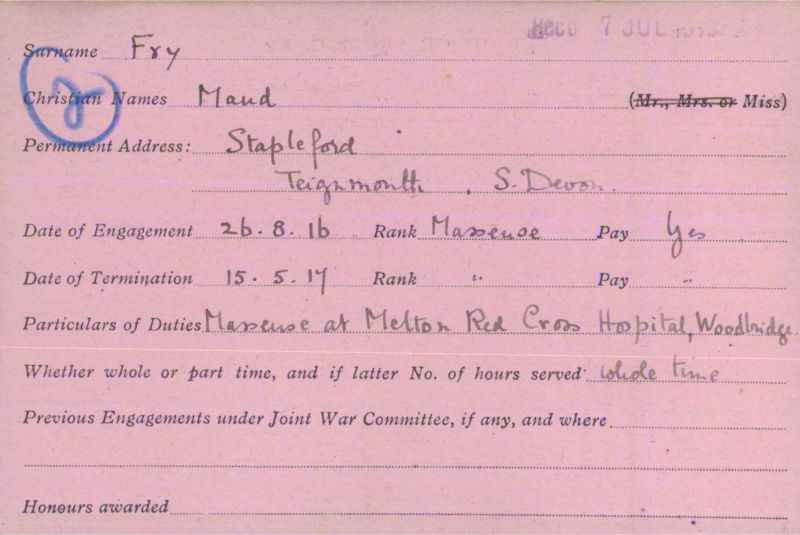 Recd 7 JUL 1919
Surname Fry
Christian Names Maud (Mr., Mrs. or Miss)
Permanent Address: Stapleford
Teignmouth, S. Devon.
Date of Engagement 26.8.16 Rank Masseuse Pay Yes
Date of Termination 15.5.17 Rank " Pay "
Particulars of Duties Masseuse at Melton Red Cross Hospital, Woodbridge.
Whether whole or part time, and if latter No. of hours served whole time
Previous Engagements under Joint War Committee, if any, and where
Honours awarded